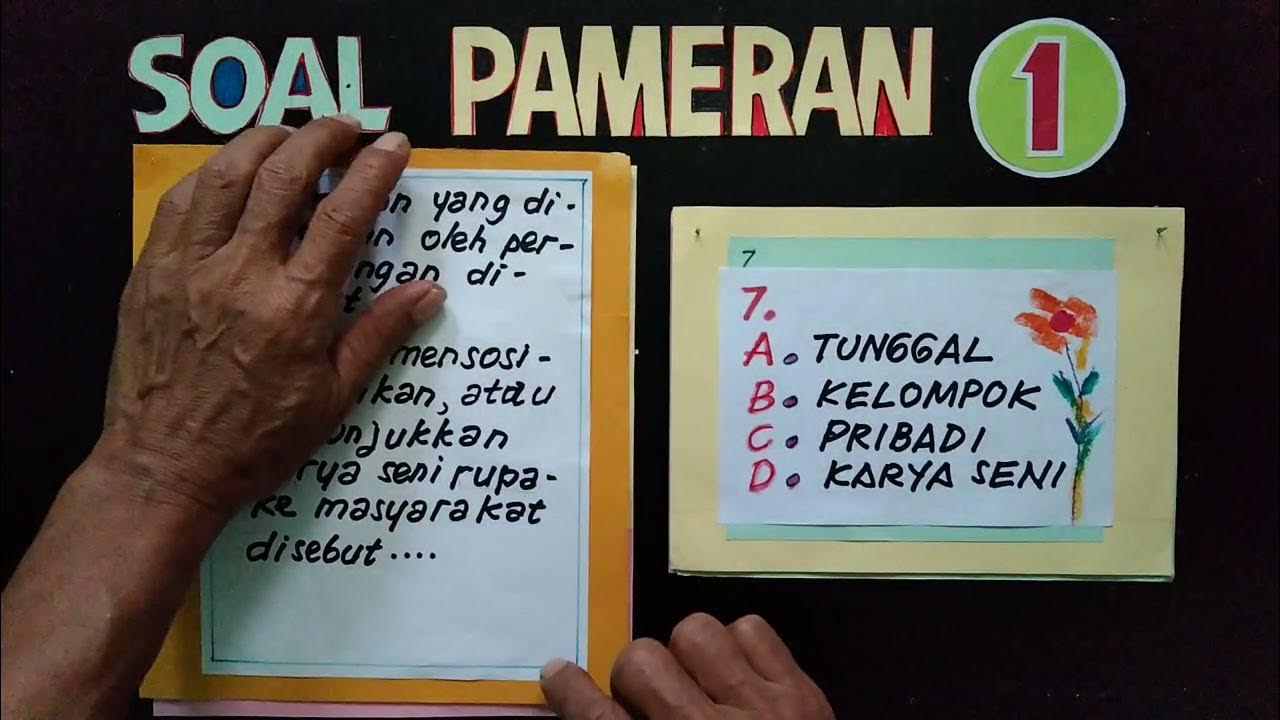 SOAL PAMERAN 1
yang di-
oleh per-
di-
mensosi-
atau
seni rupa
ke masyarakat
disebut....
7
7.
A. TUNGGAL
B. KELOMPOK
C. PRIBADI
D. KARYA SENI